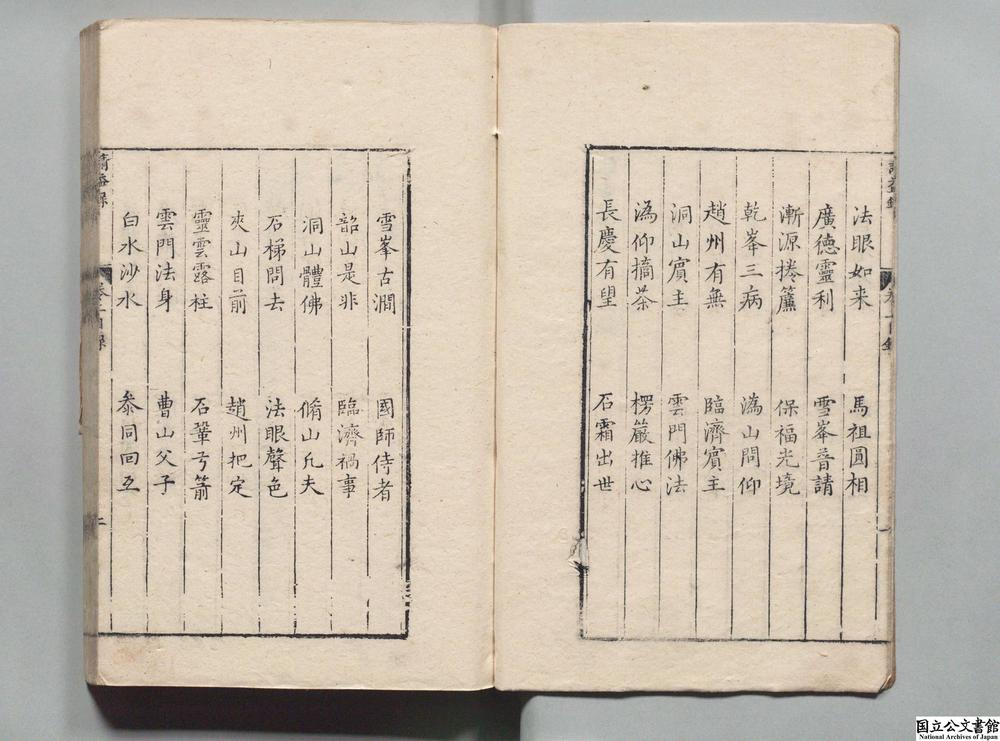 法眼如来 馬祖圓相
廣德靈利 雪峯普請
漸源捲簾 保福光境
乾峯三病 溈山問仰
趙州有無 臨濟賓主
洞山賓主 雲門佛法
溈仰摘茶 楞嚴推心
長慶有望 石霜出世
雪峯古澗 國師侍者
韶山是非 臨濟禍事
洞山體佛 脩山凡夫
石梯問去 法眼聲色
夾山目前 趙州把定
靈雲露柱 石鞏弓箭
雲門法身 曹山父子
白水沙水 叅同回互
請益錄
二
国立公文書館
National Archives of Japan